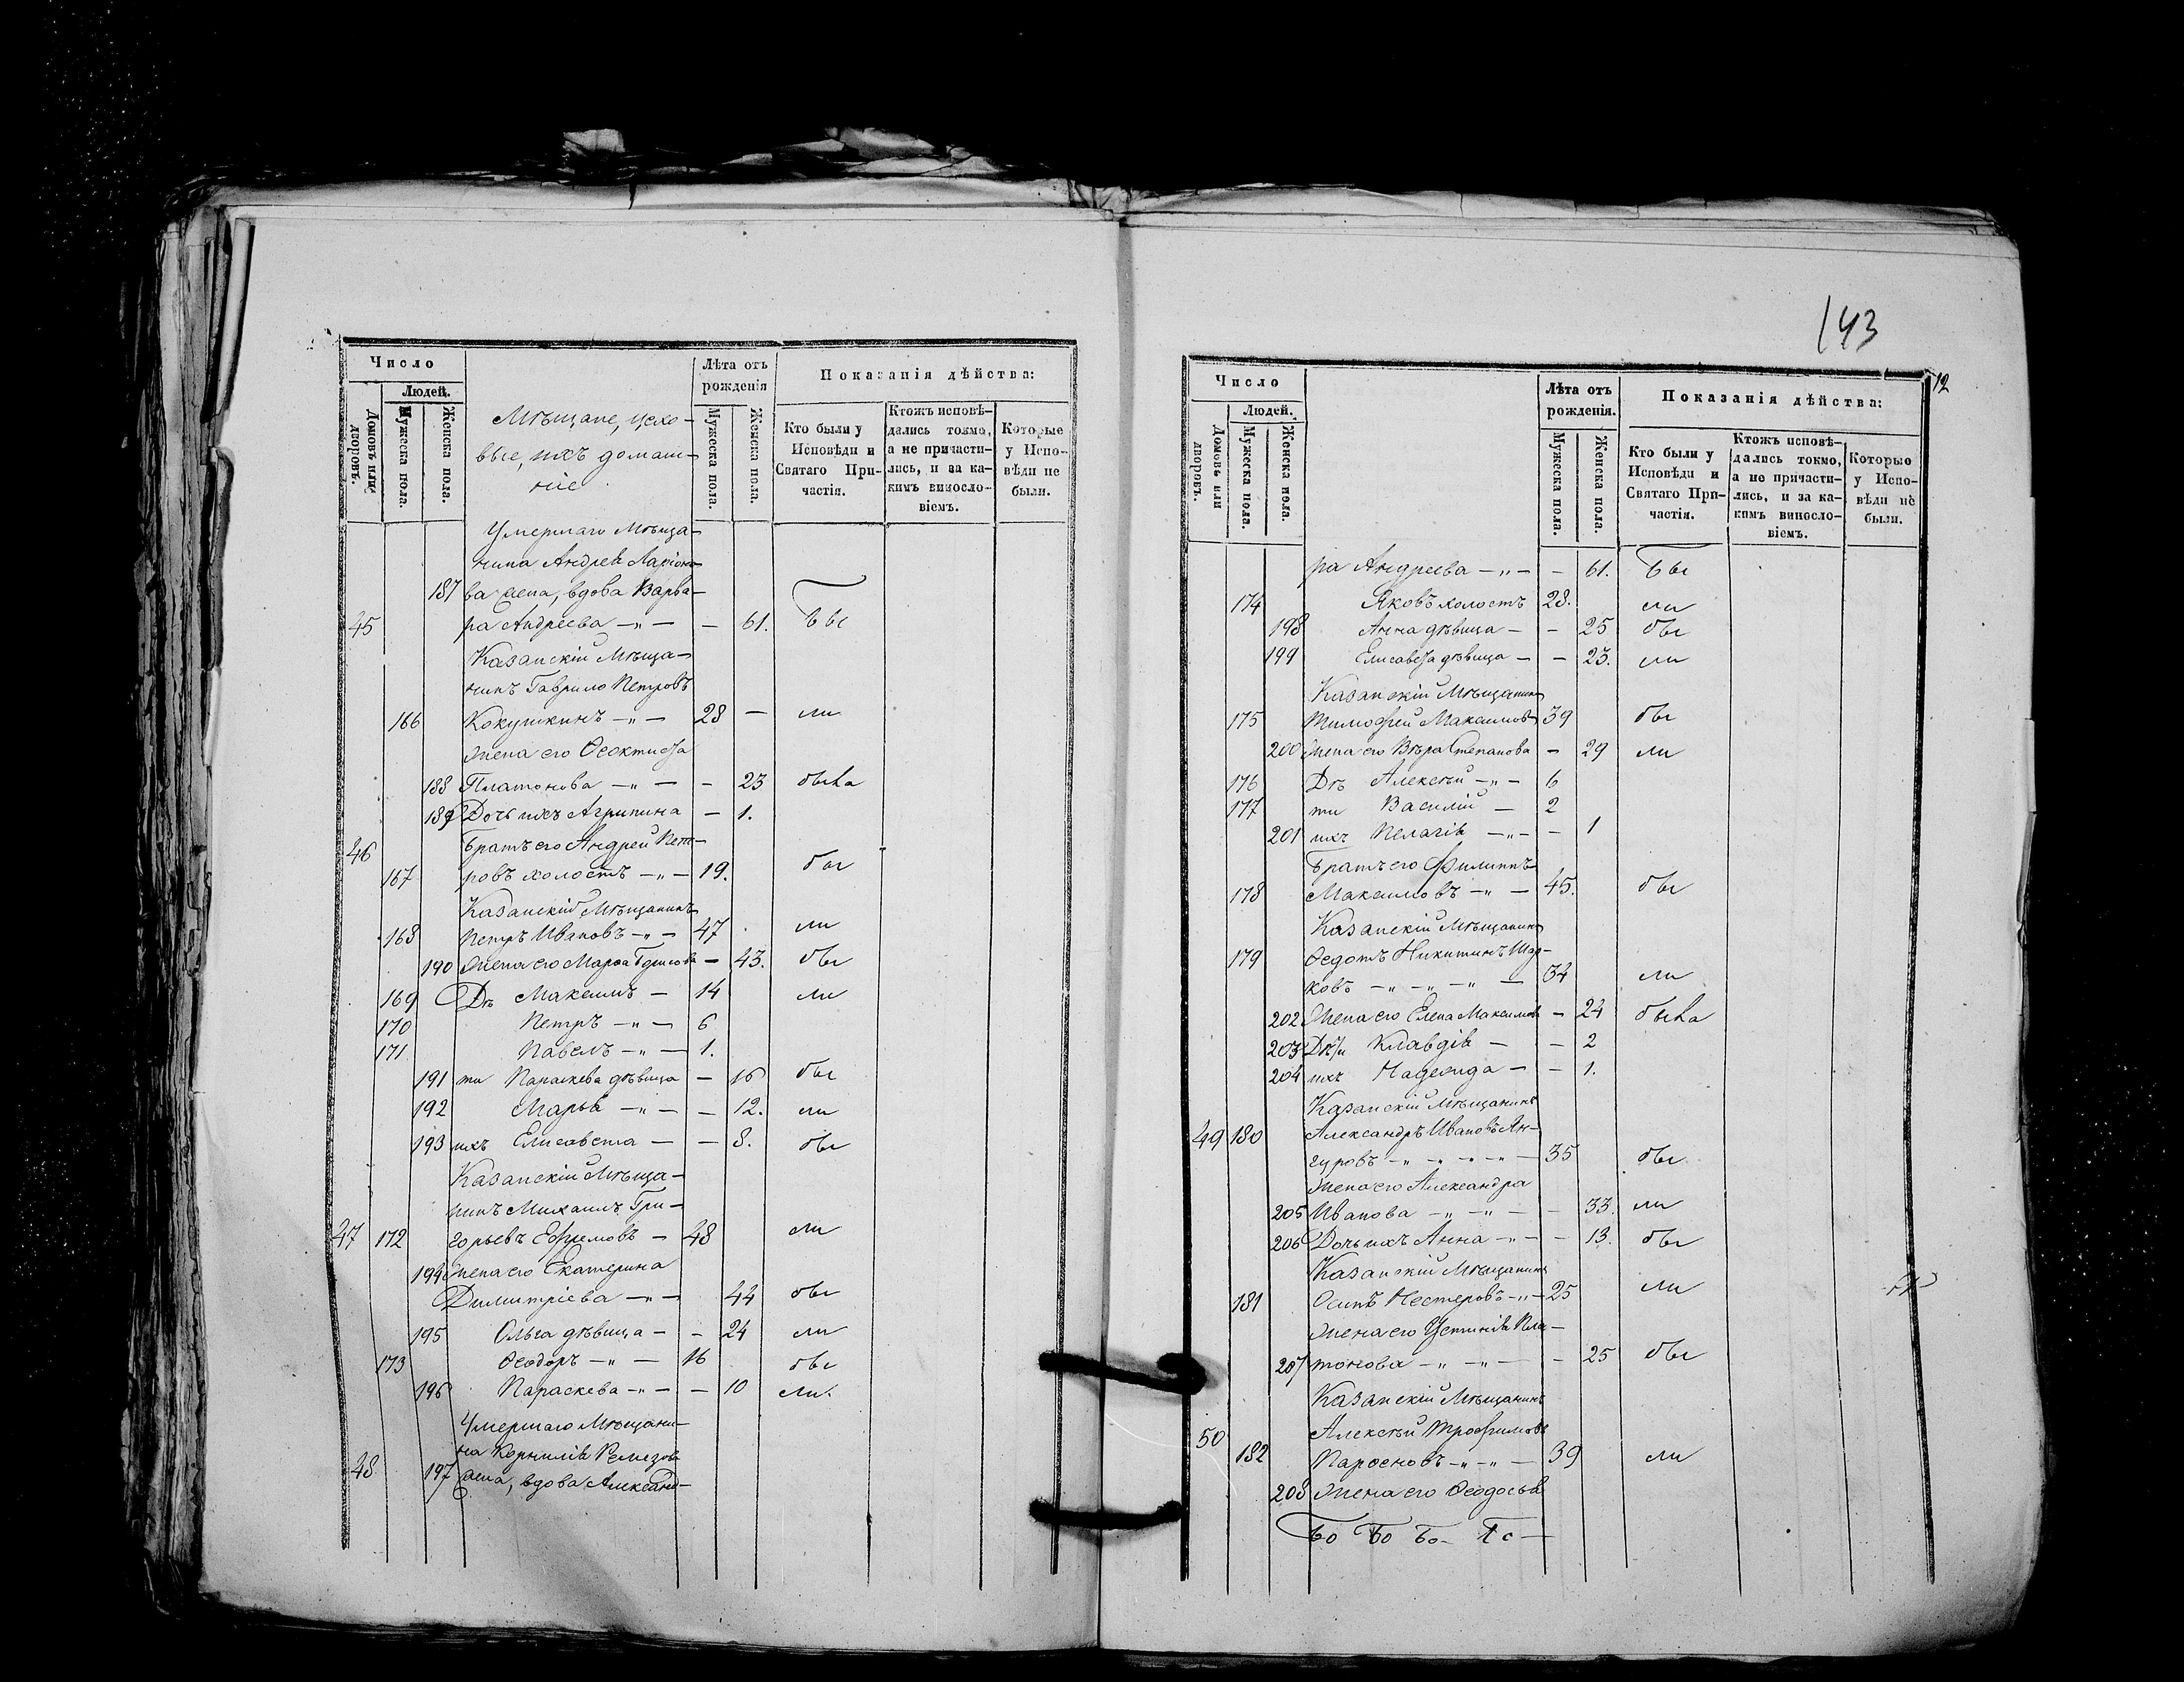 Число
Людей.
Домовъ или дворовъ.
Мужеска пола.
Женска пола.
Мѣщане, цехо-
вые, ихъ домаш-
ніе
Лѣта отъ рожденія
Мужеска пола.
Женска пола.
Показанія дѣйства:
Кто были у Исповѣди и Святаго При-частія.
Ктожъ исповѣ-дались токмо, а не причасти-лись, и за ка-кимъ винослo-віемъ.
Которые у Испо-вѣди не были.
Умершаго Мѣща-
нина Андрея Ларіоно-
187 ва жена, вдова Варва-
45 ра Андреева —„— — 61. бы
Казанскій Мѣща-
нинъ Гаврило Петровъ
166 Кокушкинъ —„— 28 — ли
жена его Ѳеоктиста
188 Платонова —„— — 23 были
189 Дочь ихъ Агрипина — 1.
46 Братъ его Андрей Пет-
167 ровъ холостъ —„— 19. бы
Казанскій Мѣщанинъ
168 Петръ Ивановъ —„— 47 ли
190 жена его Марѳа Борисова — 43. бы
169 Дѣ Максимъ — 14 ли
170 Петръ —„— 6
171 Павелъ —„— 1.
191 ти Параскева дѣвица — 16 бы
192 Марья —„— — 12. ли
193 ихъ Елисавета — — 8. бы
Казанскій Мѣща-
нинъ Михаилъ Гри-
47 172 горьевъ Ефремовъ — 48 ли
194 жена его Екатерина
Димитріева —„— 44 бы
195 Ольга дѣвица — — 24 ли
173 Ѳеодоръ —„— 16 бы
196 Параскева —„— — 10 ли.
Умершаго Мѣщани-
на Корнилія Ремезова
48 197 жена, вдова Александ-
143
12
Число
Людей.
Домовъ или дворовъ.
Мужеска пола.
Женска пола.
Лѣта отъ рожденія.
Мужеска пола.
Женска пола.
Показанія дѣйства:
Кто были у Исповѣди и Святаго При-частія.
Ктожъ исповѣ-дались токмо, а не причасти-лись, и за ка-кимъ винослo-віемъ.
Которые у Испо-вѣди не были.
ра Андреева —„— — 61. бы
174 Яковъ холостъ 28. ли
198 Анна дѣвица — — 25 бы
199 Елисавета дѣвица — — 23. ли
Казанскій Мѣщанинъ
175 Тимофей Максимовъ 39 бы
200 жена его Вѣра Степанова — 29 ли
176 Дѣ Алексѣй —„— 6
177 ти Василій — 2
201 ихъ Пелагія —„— — 1
Братъ его Филиппъ
178 Максимовъ —„— 45. бы
Казанскій Мѣщанинъ
179 Ѳедотъ Никитинъ Шад-
ковъ —„—„—„— 34 ли
202 жена его Елена Максимова — 24 были
203 Дѣти Клавдія — — 2
204 ихъ Надежда — — 1.
Казанскій Мѣщанинъ
49 180 Александръ Ивановъ Ан-
гуровъ —„—„—„— 35 бы
жена его Александра
205 Иванова —„—„— — 33. ли
206 Дочь ихъ Анна —„— — 13. бы
Казанскій Мѣщанинъ
181 Осипъ Нестеровъ —„— 25 ли
жена его Устинія Пла-
207 тонова —„—„— — 25 бы
Казанскій Мѣщанинъ
50 Алексѣй Трофимовъ
182 Парѳеновъ —„—„— 39 ли
208 жена его Ѳеодосья